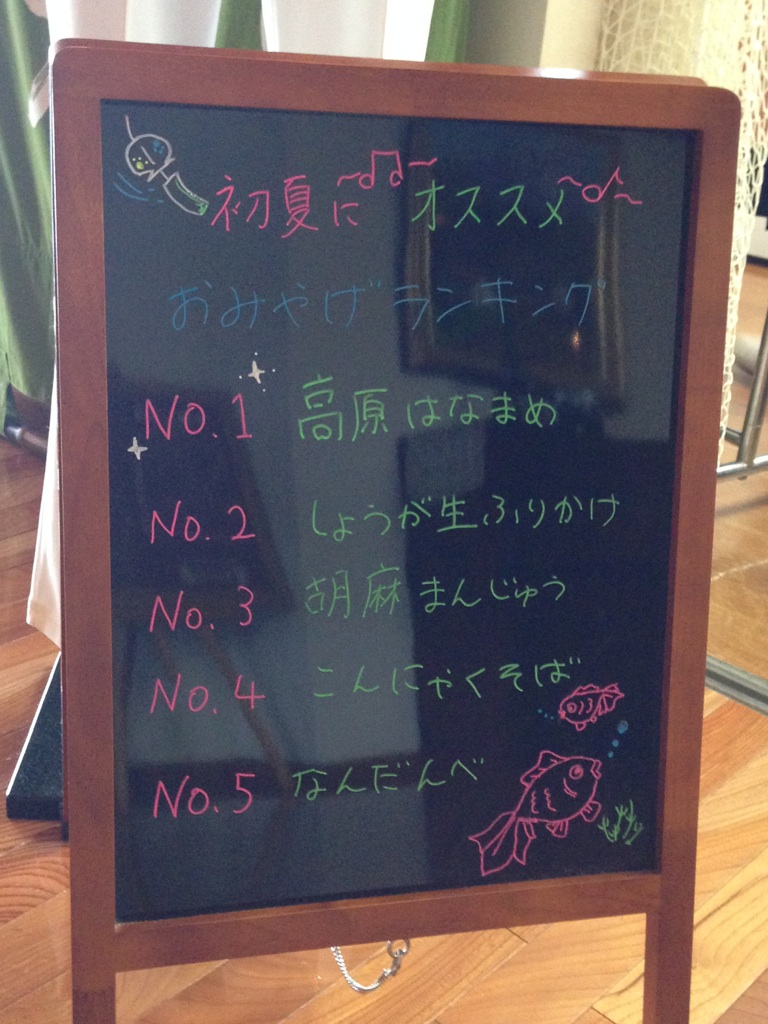 初夏に～♫～オススメ～♪～
おみやげランキング
No.1 高原はなまめ
No.2 しょうが生ふりかけ
No.3 胡麻まんじゅう
No.4 こんにゃくそば
No.5 なんだんべ